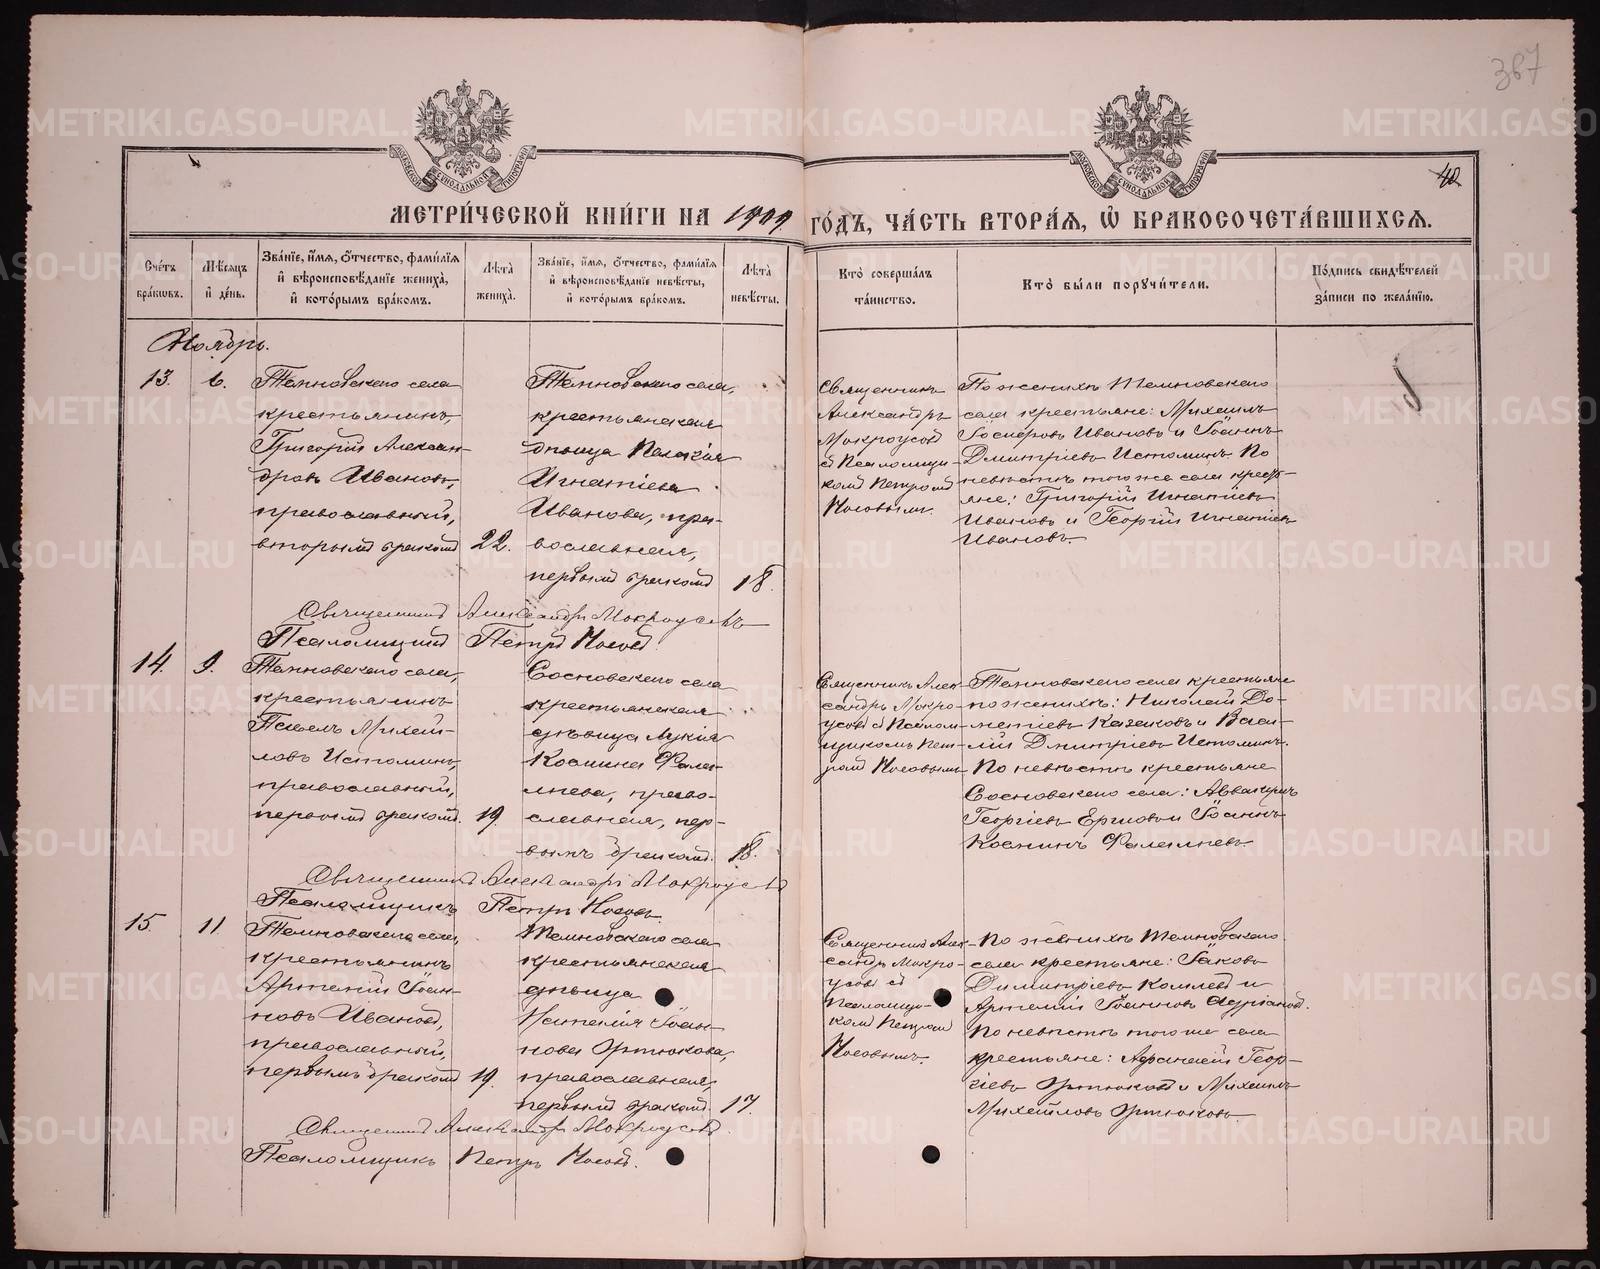 367
40
МОСКОВСКОЙ СУНОДАЛЬНОЙ ТИПОГРАФІИ
МОСКОВСКОЙ СУНОДАЛЬНОЙ ТИПОГРАФІИ
МЕТРИ́ЧЕСКОЙ КНИ́ГИ НА 1909 ГО́ДЪ, ЧА́СТЬ ВТОРА́Я, Ѽ БРАКОСОЧЕТА́ВШИХСЯ.
Сче́тъ бра́ковъ.
Мѣ́сяцъ и҆ де́нь.
Зва́нїе, и҆́мя, ѻ҆́тчество, фами́лїя и҆ вѣроисповѣ́данїе жениха̀, и҆ кото́рымъ бра́комъ.
Лѣ́та жениха̀.
Зва́нїе, и҆́мя, ѻ҆́тчество, фами́лїя и҆ вѣроисповѣ́данїе невѣ́сты, и҆ кото́рымъ бра́комъ.
Лѣ́та невѣ́сты.
Кто̀ соверша́лъ та́инство.
Кто̀ бы́ли порꙋчи́тели.
По́дпись свидѣ́телей за́писи по жела́нїю.
Ноябрь.
13.
6.
Темновскаго села
крестьянинъ
Григорій Алексан-
дровъ Ивановъ,
православный,
вторымъ бракомъ
22.
Темновскаго села,
крестьянская
дѣвица Пелагія
Игнатіева
Иванова, пра-
вославная,
первымъ бракомъ
18.
Священникъ
Александръ
Мокроусовъ
съ Псаломщи-
комъ Петромъ
Носовымъ.
По женихѣ Темновскаго
села крестьяне: Михаилъ
Іосифовъ Ивановъ и Іоаннъ
Дмитріевъ Истоминъ. По
невѣстѣ того же села кресть-
яне: Григорій Игнатіевъ
Ивановъ и Георгій Игнатіевъ
Ивановъ.
Священникъ Александръ Мокроусовъ
Псаломщикъ Петръ Носовъ
14.
9.
Темновскаго села,
крестьянинъ
Павелъ Михай-
ловъ Истоминъ,
православный,
первымъ бракомъ.
19.
Сосновскаго села
крестьянская
дѣвица Лукія
Космина Фала-
лѣева, право-
славная, пер-
вымъ бракомъ.
18.
Священникъ Алек-
сандръ Мокро-
усовъ съ Псалом-
щикомъ Пет-
ромъ Носовымъ
Темновскаго села крестьяне
по женихѣ: Николай До-
метіевъ Казаковъ и Васи-
лій Дмитріевъ Истоминъ.
По невѣстѣ крестьяне
Сосновскаго села: Аввакумъ
Георгіевъ и Іоаннъ
Косминъ Фалалѣевъ
Священникъ Александръ Мокроусовъ
Псаломщикъ Петръ Носовъ.
15.
11
Темновскаго села,
крестьянинъ
Артемій Іоан-
новъ Ивановъ,
православный,
первымъ бракомъ
19.
Темновскаго села
крестьянская
дѣвица
Наталія Іоан-
нова Ортюкова,
православная,
первымъ бракомъ.
17.
Священникъ Алек-
сандръ Мокро-
усовъ съ
Псаломщи-
комъ Петромъ
Носовымъ.
По женихѣ Темновскаго
села крестьяне: Іаковъ
Димитріевъ и
Артемій Іоанновъ Адріановъ.
По невѣстѣ того же села
крестьяне: Афанасій Геор-
гіевъ Ортюковъ и Михаилъ
Михайловъ Ортюковъ
Священникъ Александръ Мокроусовъ.
Псаломщикъ Петръ Носовъ.
METRIKI.GASO-URAL.RU